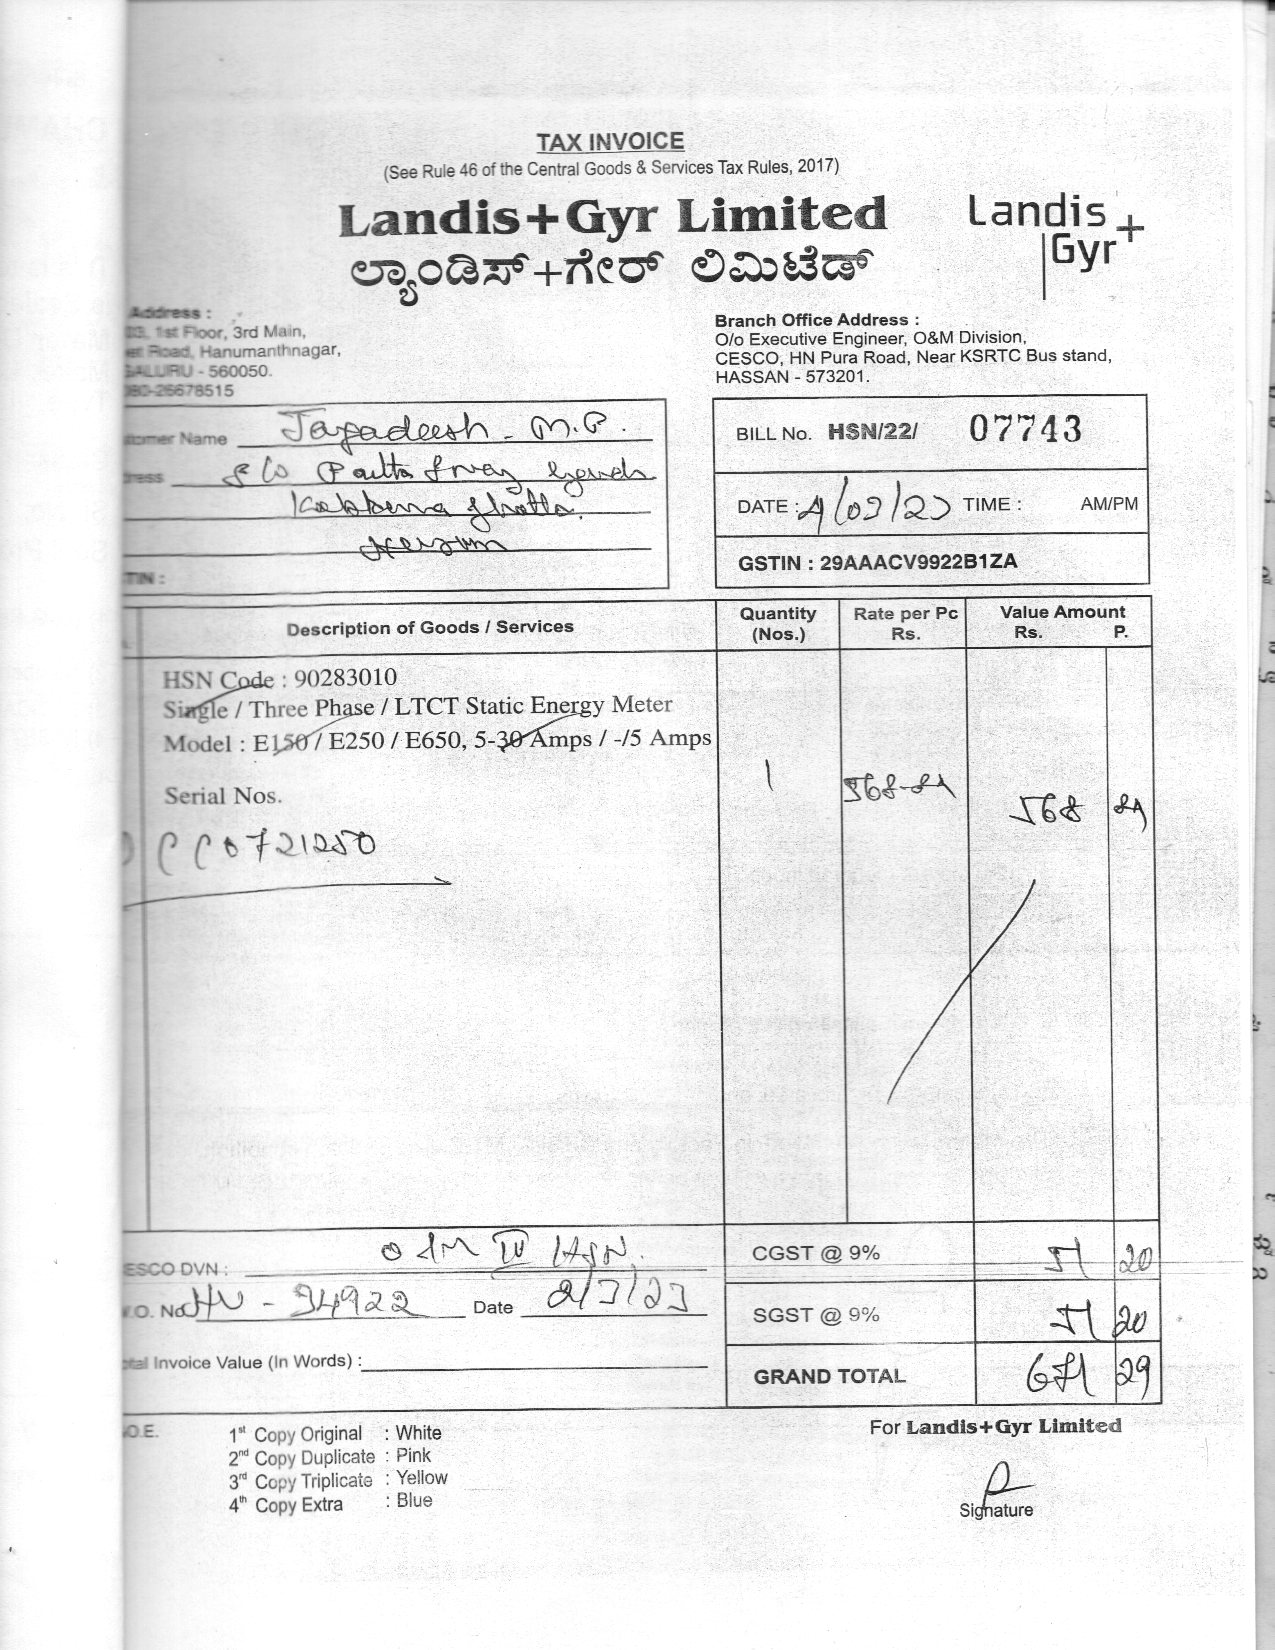 TAX INVOICE
(See Rule 46 of the Central Goods & Services Tax Rules, 2017)
Landis+Gyr Limited
ಲ್ಯಾಂಡಿಸ್+ಗೇರ್ ಲಿಮಿಟೆಡ್
Landis
Gyr+
Address :
1st Floor, 3rd Main,
Road, Hanumanthnagar,
- 560050.
080-26678515
Branch Office Address :
O/o Executive Engineer, O&M Division,
CESCO, HN Pura Road, Near KSRTC Bus stand,
HASSAN - 573201.
Customer Name Jagadeesh - M.P.
S/o
TIN :
BILL No. HSN/22/ 07743
DATE : /03/23 TIME : AM/PM
GSTIN : 29AAACV9922B1ZA
Description of Goods / Services
Quantity (Nos.)
Rate per Pc Rs.
Value Amount
Rs. P.
HSN Code : 90283010
Single / Three Phase / LTCT Static Energy Meter
Model : E150 / E250 / E650, 5-30 Amps / -/5 Amps
1 568-89 568 89
Serial Nos.
CC0721250
ESCO DVN : O&M IV HSN.
CGST @ 9% 51 20
O. No. HV - 34922 Date 2/3/23
SGST @ 9% 51 20
Total Invoice Value (In Words) :
GRAND TOTAL 671 29
O.E.
1st Copy Original : White
2nd Copy Duplicate : Pink
3rd Copy Triplicate : Yellow
4th Copy Extra : Blue
For Landis+Gyr Limited
Signature